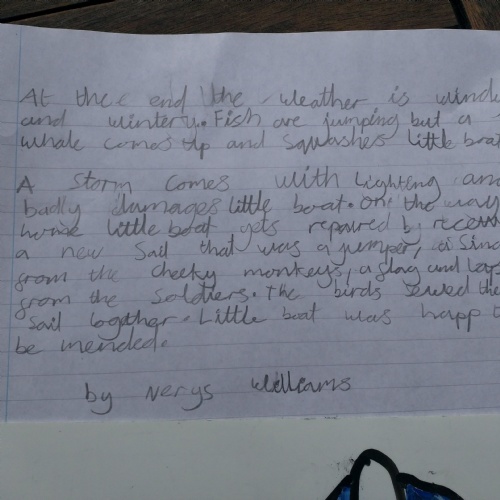 At the end the weather is wind
and wintery. Fish are jumping but a
whale comes up and squashes little boat
A storm comes with lighting and
badly damages little boat. On the way
home little boat gets repaired by
a new sail that was a jumper,
from the cheeky monkeys, a flag and
from the soldiers. The birds sewed the
sail together. Little boat was happ
be mended.
by Nerys Williams